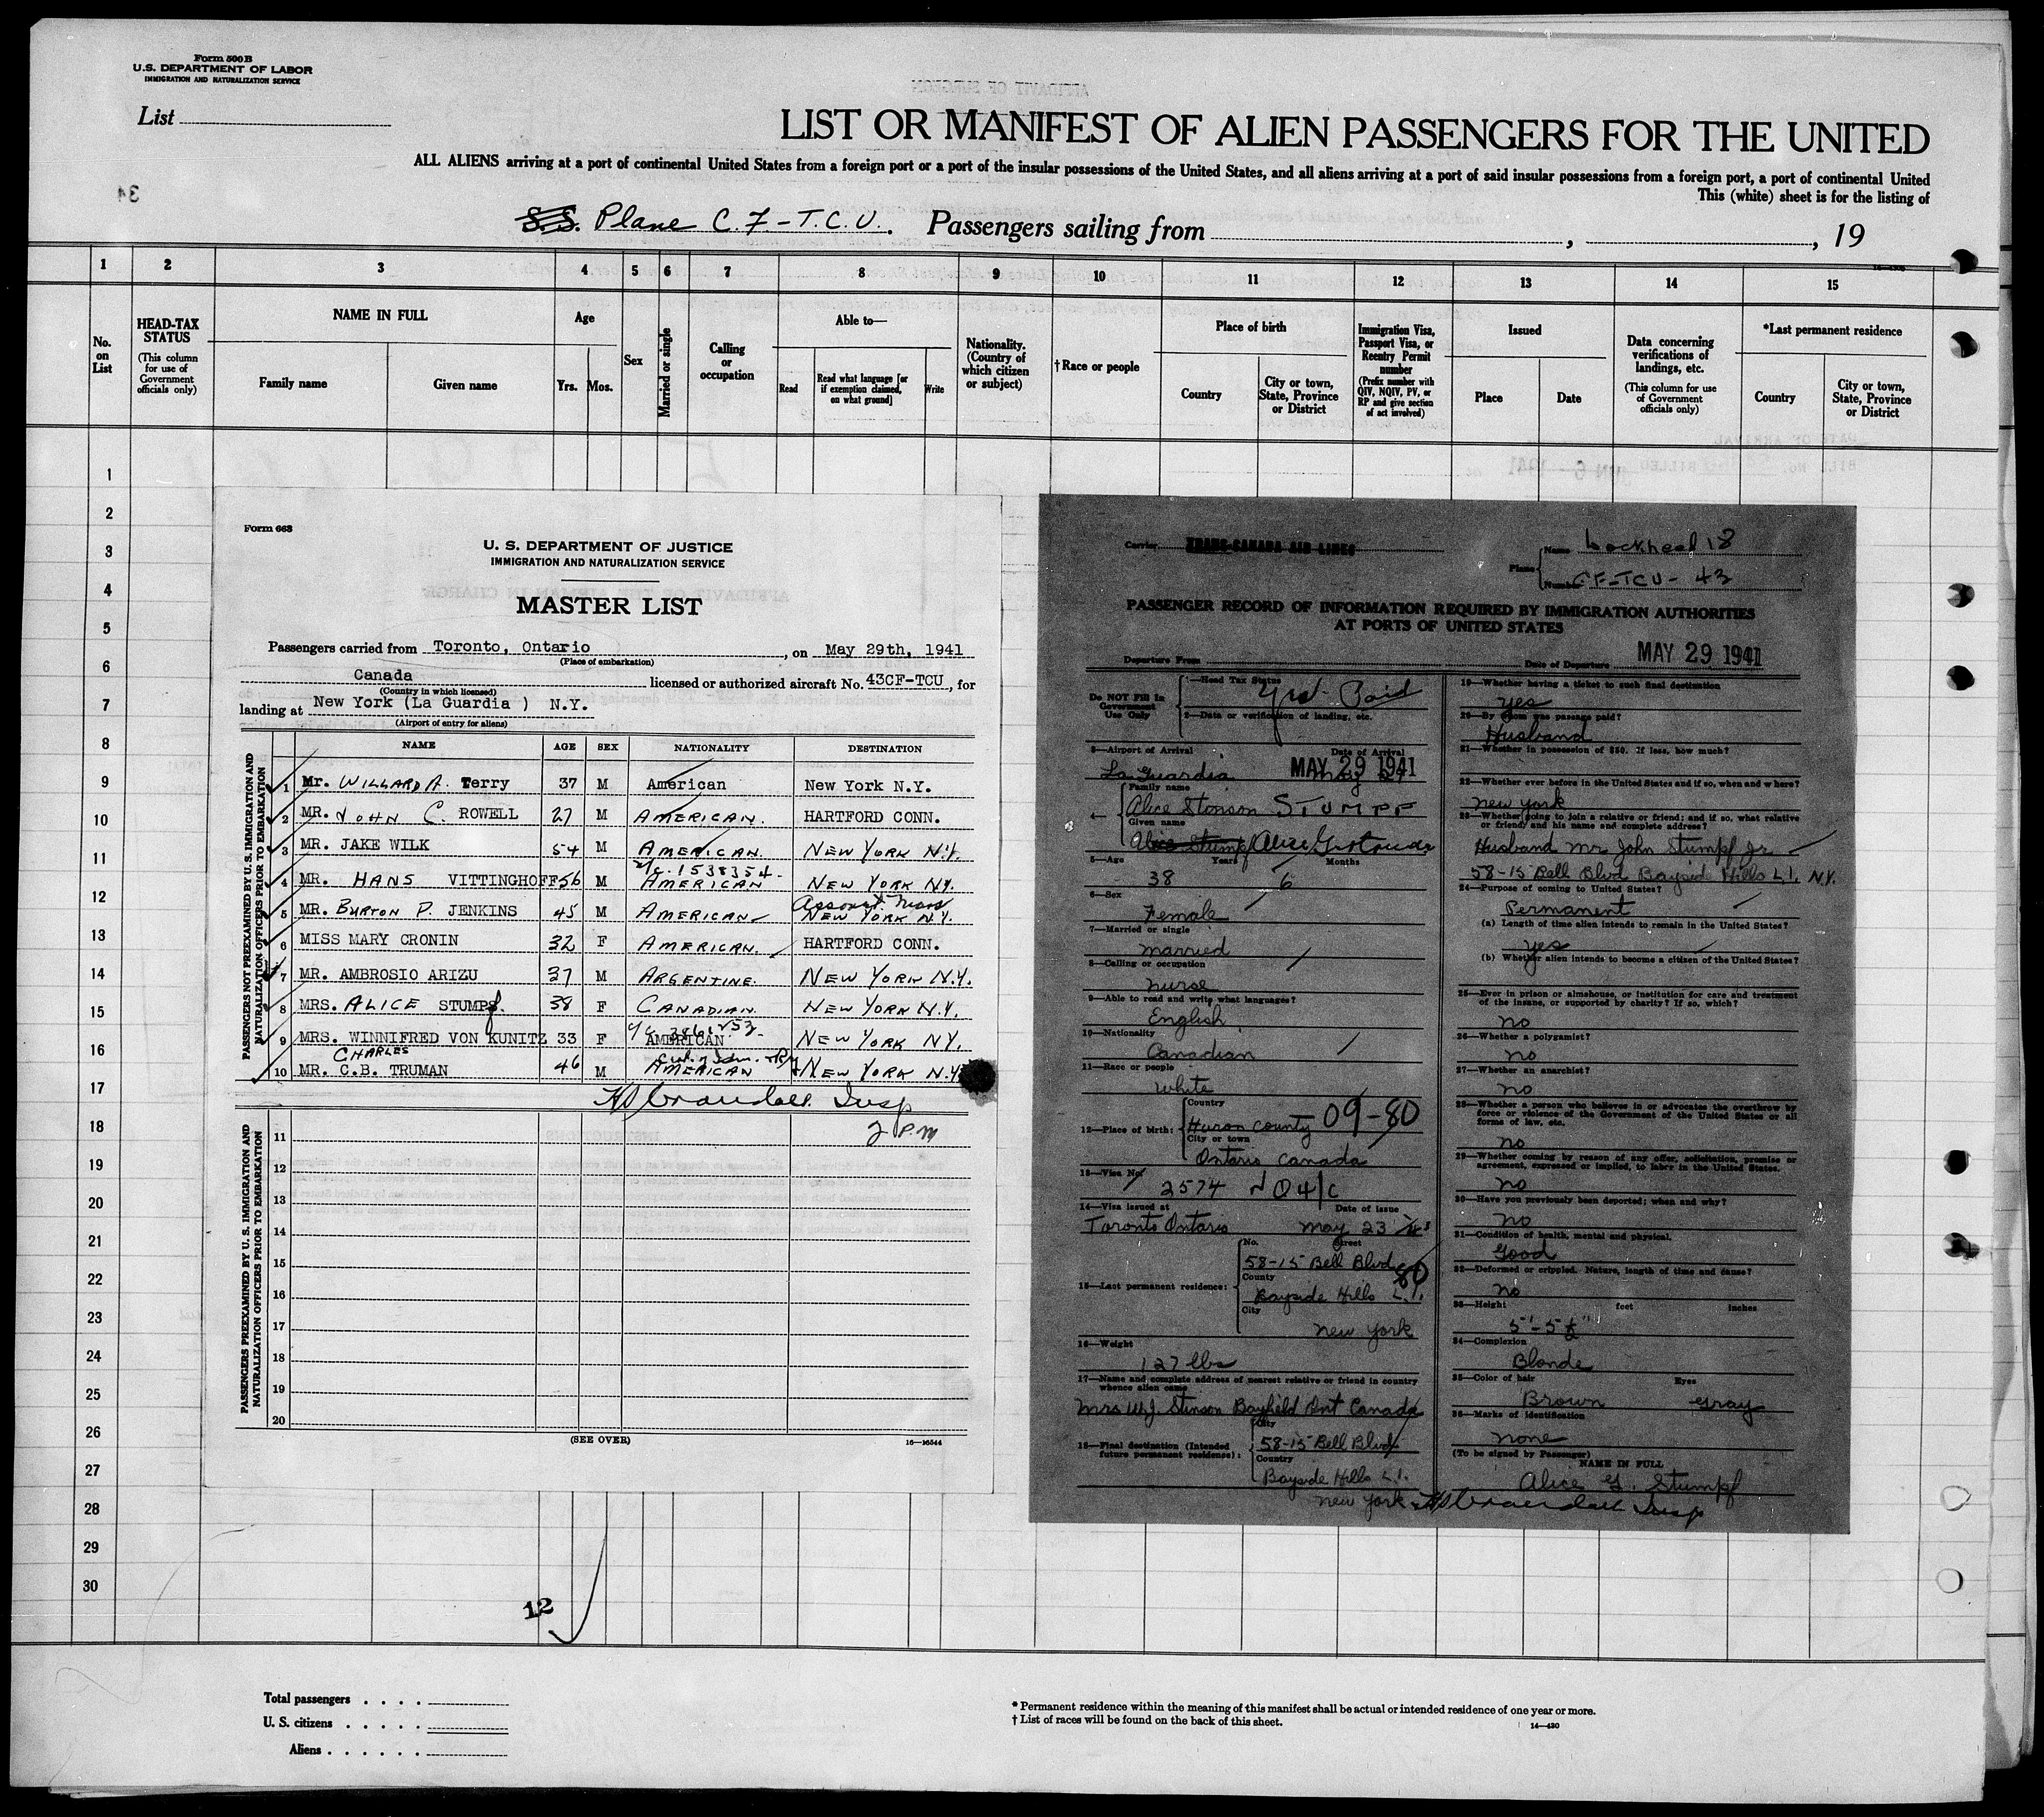 Form 500 B
U.S. DEPARTMENT OF LABOR
IMMIGRATION AND NATURALIZATION SERVICE
List
LIST OR MANIFEST OF ALIEN PASSENGERS FOR THE UNITED
ALL ALIENS arriving at a port of continental United States from a foreign port or a port of the insular possessions of the United States, and all aliens arriving at a port of said insular possessions from a foreign port, a port of continental United
This (white) sheet is for the listing of
34
S.S. Plane C.F-T.C.U. Passengers sailing from , , 19
1 2 3 4 5 6 7 8 9 10 11 12 13 14 15
No. on List
HEAD-TAX STATUS
(This column for use of Government officials only)
NAME IN FULL
Family name Given name
Age
Yrs. Mos.
Sex
Married or single
Calling or occupation
Able to—
Read Read what language [or if exemption claimed, on what ground] Write
Nationality. (Country of which citizen or subject)
† Race or people
Place of birth
Country City or town, State, Province or District
Immigration Visa, Passport Visa, or Reentry Permit number
(Prefix number with QIV, NQIV, PV, or RP and give section of act involved)
Issued
Place Date
Data concerning verifications of landings, etc.
(This column for use of Government officials only)
*Last permanent residence
Country City or town, State, Province or District
1
2
3
4
5
6
7
8
9
10
11
12
13
14
15
16
17
18
19
20
21
22
23
24
25
26
27
28
29
30
Form 663
U. S. DEPARTMENT OF JUSTICE
IMMIGRATION AND NATURALIZATION SERVICE
MASTER LIST
Passengers carried from Toronto, Ontario , on May 29th, 1941
(Place of embarkation)
Canada licensed or authorized aircraft No. 43CF-TCU, for
(Country in which licensed)
landing at New York (La Guardia ) N.Y.
(Airport of entry for aliens)
NAME AGE SEX NATIONALITY DESTINATION
PASSENGERS NOT PREEXAMINED BY U. S. IMMIGRATION AND NATURALIZATION OFFICERS PRIOR TO EMBARKATION
1 Mr. WILLARD A. Terry 37 M American New York N.Y.
2 MR. JOHN C. ROWELL 27 M AMERICAN. HARTFORD CONN.
3 MR. JAKE WILK 54 M AMERICAN. NEW YORK N.Y.
1538354
4 MR. HANS VITTINGHOFF 56 M AMERICAN NEW YORK N.Y.
5 MR. BURTON P. JENKINS 45 M AMERICAN NEW YORK N.Y.
6 MISS MARY CRONIN 32 F AMERICAN. HARTFORD CONN.
7 MR. AMBROSIO ARIZU 37 M ARGENTINE. NEW YORK N.Y.
8 MRS. ALICE STUMPf. 38 F CANADIAN. NEW YORK N.Y.
9 MRS. WINNIFRED VON KUNITZ 33 F AMERICAN NEW YORK NY.
CHARLES
10 MR. C.B. TRUMAN 46 M AMERICAN NEW YORK N.Y.
Insp
2 P.M
PASSENGERS PREEXAMINED BY U. S. IMMIGRATION AND NATURALIZATION OFFICERS PRIOR TO EMBARKATION
11
12
13
14
15
16
17
18
19
20
(SEE OVER)
16—16544
Carrier TRANS-CANADA AIR LINES
Plane Name Lockheed 18
Number CF-TCU- 43
PASSENGER RECORD OF INFORMATION REQUIRED BY IMMIGRATION AUTHORITIES
AT PORTS OF UNITED STATES
Departure From Date of Departure MAY 29 1941
Do NOT Fill In Government Use Only
1—Head Tax Status
Paid
2—Data or verification of landing, etc.
3—Airport of Arrival Date of Arrival
La Guardia MAY 29 1941
4— Family name
Alice Stinson STUMPF
Given name
Alice Stumpf Alice Gertrude
5—Age Years Months
38 6
6—Sex
Female
7—Married or single
married
8—Calling or occupation
nurse
9—Able to read and write what languages?
English
10—Nationality
Canadian
11—Race or people
White
12—Place of birth: Country
Huron County 09-80
City or town
Ontario Canada
13—Visa No.
2574
14—Visa issued at Date of issue
Toronto Ontario May 23
15—Last permanent residence: No. Street
58-15 Bell Blvd
County 80
Bayside Hills L.I.
City
New York
16—Weight
127 lbs
17—Name and complete address of nearest relative or friend in country whence alien came
Mrs W.J. Stinson Bayfield Ont Canada
18—Final destination (Intended future permanent residence): City
58-15 Bell Blvd
Country
Bayside Hills L.I.
New York
19—Whether having a ticket to such final destination
Yes
20—By whom was passage paid?
Husband
21—Whether in possession of $50. If less, how much?
22—Whether ever before in the United States and if so, when and where?
New York
23—Whether going to join a relative or friend; and if so, what relative or friend, and his name and complete address?
Husband Mr John Stumpf Jr
58-15 Bell Blvd Bayside Hills L.I. N.Y.
24—Purpose of coming to United States?
Permanent
(a) Length of time alien intends to remain in the United States?
yes
(b) Whether alien intends to become a citizen of the United States?
25—Ever in prison or almshouse, or institution for care and treatment of the insane, or supported by charity? If so, which?
no
26—Whether a polygamist?
no
27—Whether an anarchist?
no
28—Whether a person who believes in or advocates the overthrow by force or violence of the Government of the United States or all forms of law, etc.
no
29—Whether coming by reason of any offer, solicitation, promise or agreement, expressed or implied, to labor in the United States.
no
30—Have you previously been deported; when and why?
no
31—Condition of health, mental and physical.
Good
32—Deformed or crippled. Nature, length of time and cause?
no
33—Height feet inches
5'-5½"
34—Complexion
Blonde
35—Color of hair Eyes
Brown Gray
36—Marks of identification
none
(To be signed by Passenger)
NAME IN FULL
Alice G. Stumpf
Insp
12
Total passengers . . . .
U. S. citizens . . . . .
Aliens . . . . . .
* Permanent residence within the meaning of this manifest shall be actual or intended residence of one year or more.
† List of races will be found on the back of this sheet.
14—430